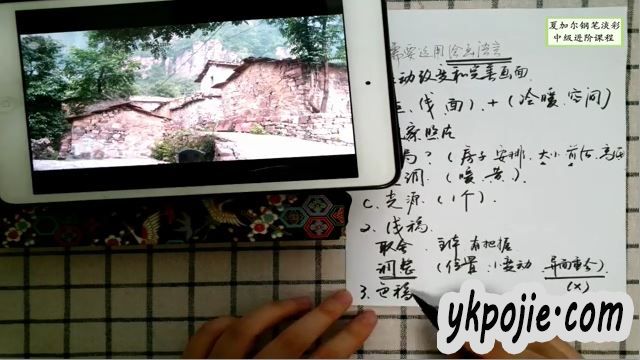 夏加尔钢笔淡彩
中级进阶课程
需要运用绘画语言
动改变和完善画面
线、面)+(冷暖、空间)
家照片
?(房子安排、大小、前后、高低
调.(暖、黄.)
c.光源.(1个).
2.线稿.
取舍
调整 (位置.小变动
(x)
3.色稿
ykpojie.com